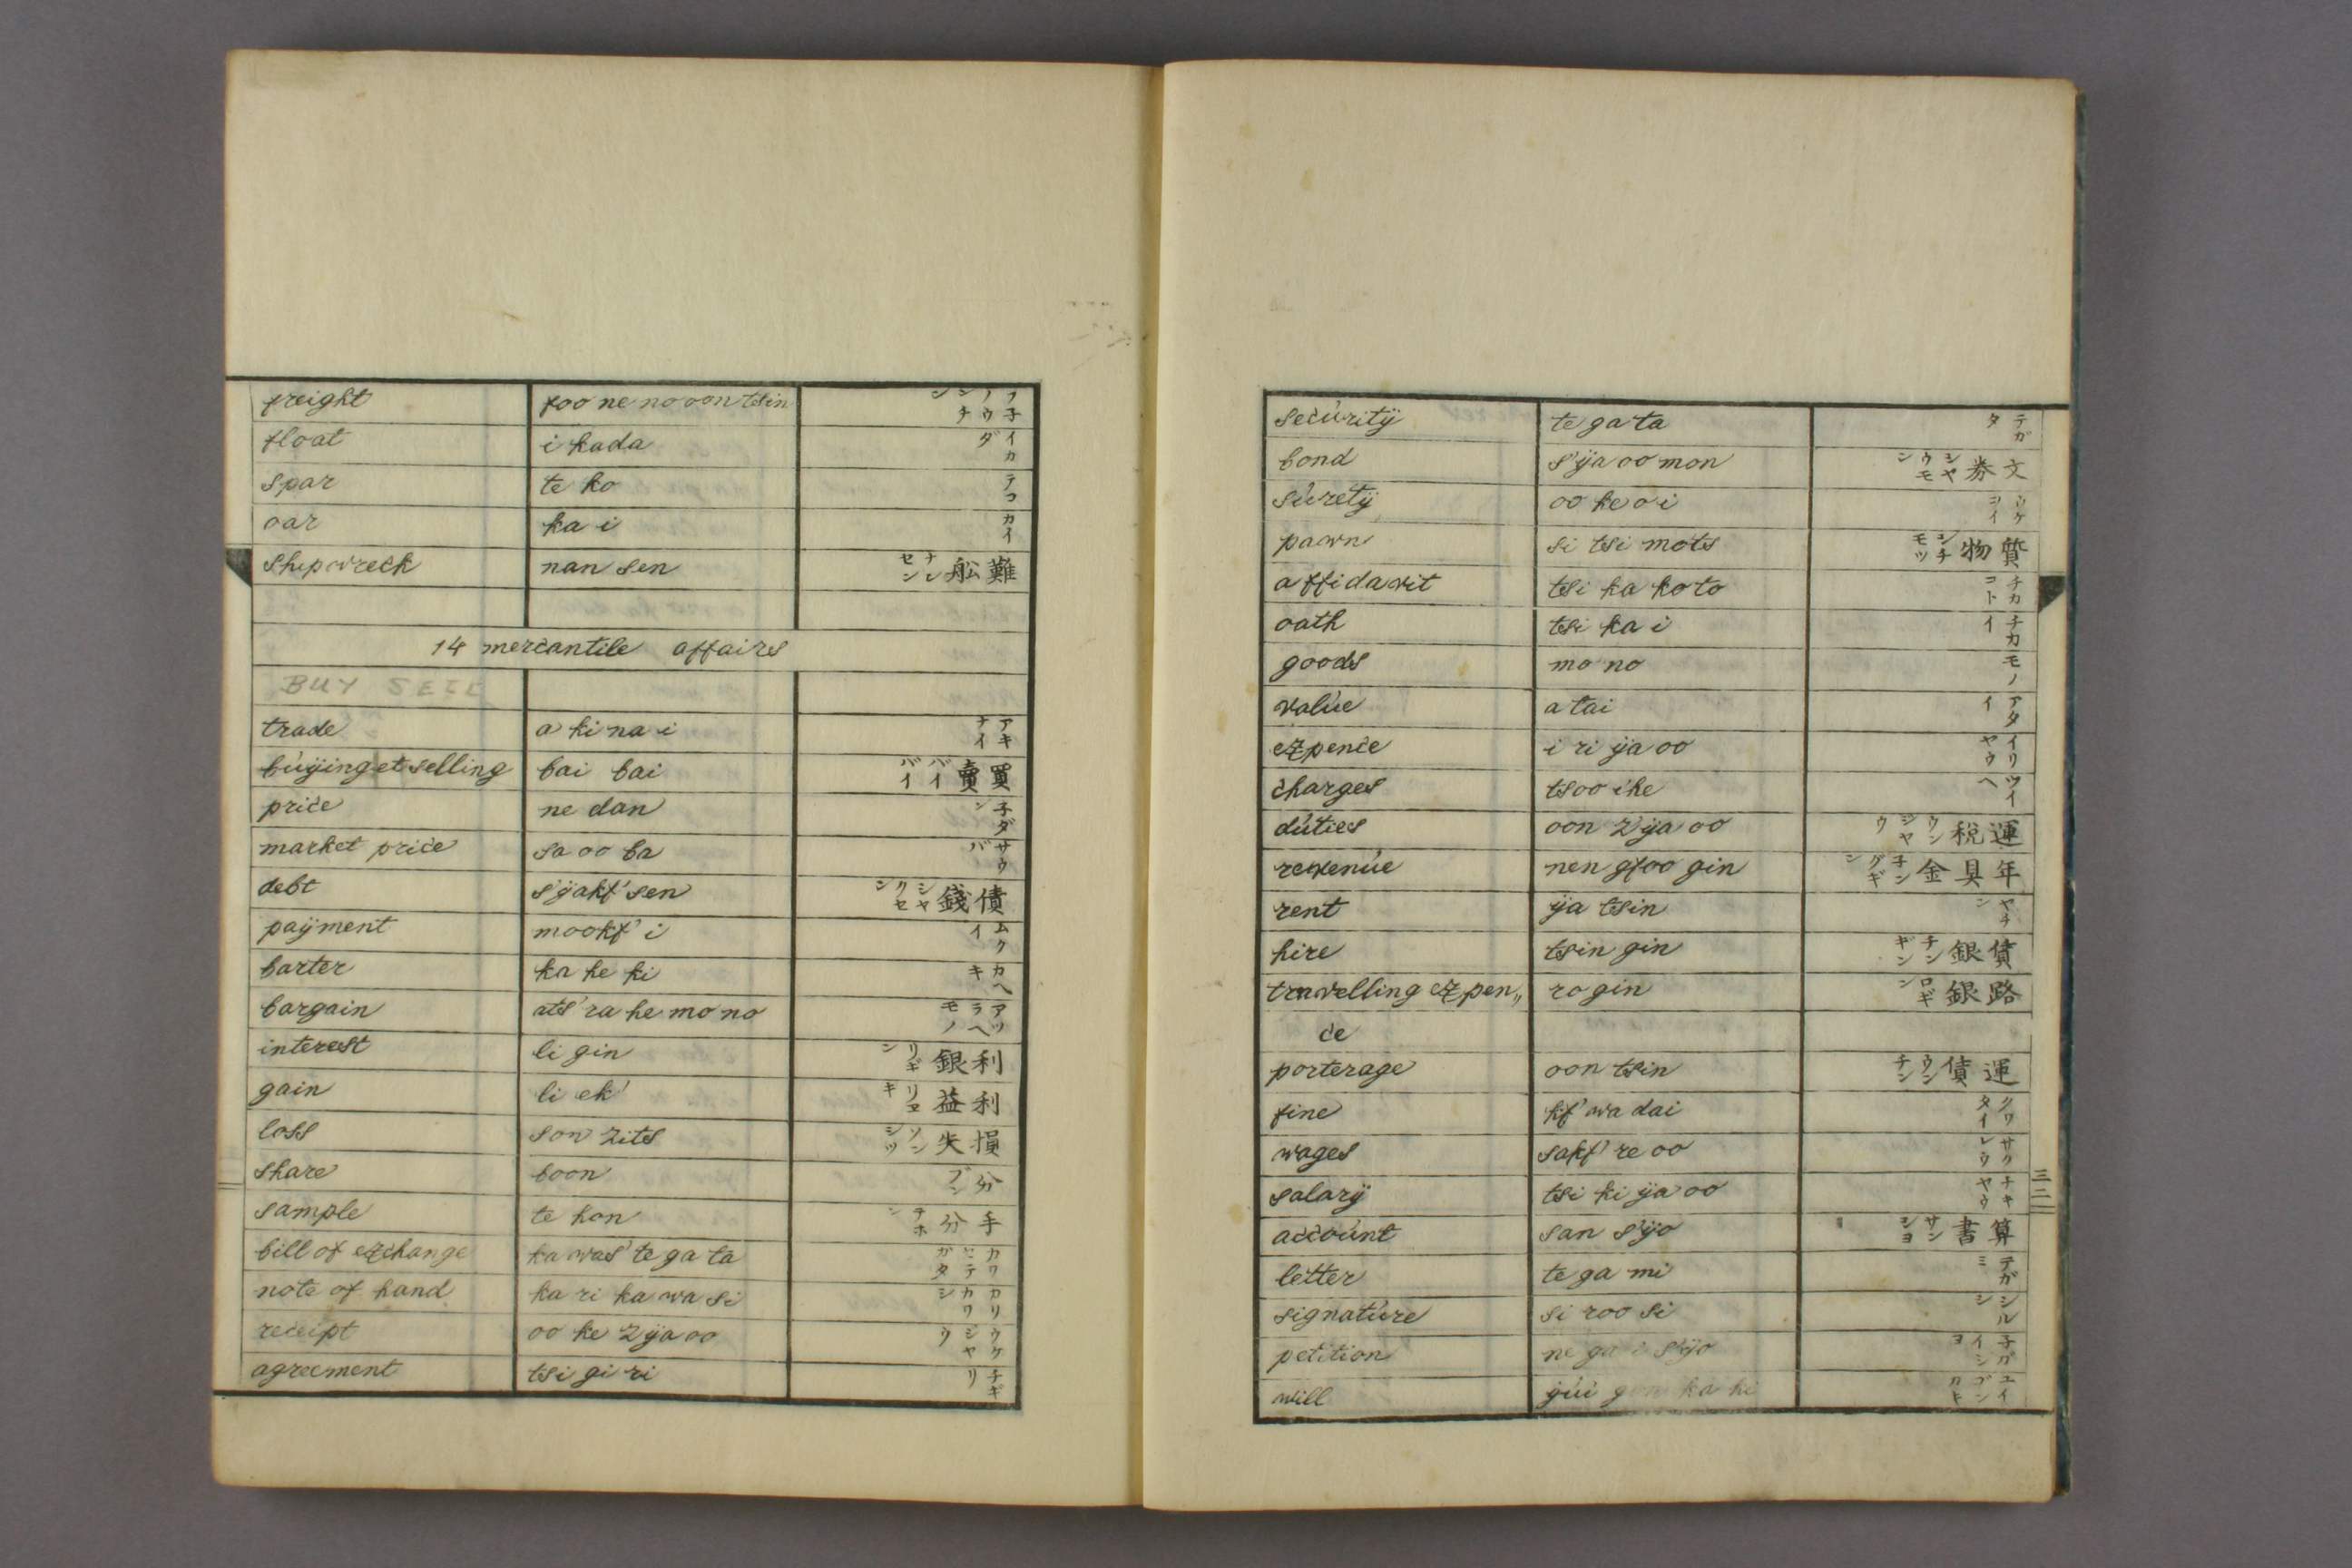 freight foo ne no oon tsin フ子ノウンチン
float i kada イカダ
spar te ko テコ
oar ka i カイ
shipwreck nan sen 難舩 ナンセン
14 mercantile affairs
BUY SELL
trade a ki na i アキナイ
búÿing et selling bai bai 買賣 バイバイ
price ne dan 子ダン
market price sa oo ba サウバ
debt s'ÿakf'sen 債錢 シヤクセン
paÿment mookf'i ムクイ
barter ka he ki カヘキ
bargain ats'ra he mo no アツラヘモノ
interest li gin 利銀 リギン
gain li ek' 利益 リヱキ
loss son zits 損失 ソンシツ
share boon 分 ブン
sample te hon 手分 テホン
bill of exchange ka was' te ga ta カワセテガタ
note of hand ka ri ka wa si カリカワシ
receipt oo ke zÿa oo ウケジヤウ
agreement tsi gi ri チギリ
secúritÿ te ga ta テガタ
bond s'ÿa oo mon 文券 シヤウモン
súretÿ oo ke o i
pawn si tsi mots 質物 シチモツ
affidavit tsi ka koto チカコト
oath tsi ka i チカイ
goods mo no モノ
valúe a tai アタイ
expence i ri ÿa oo イリヤウ
charges tsoo ihe ツイヘ
dúties oon z'ÿa oo 運税 ウンジヤウ
revenúe nen gfoo gin 年具金 子ングギン
rent ÿa tsin ヤチン
hire tsin gin 賃銀 チンギン
travelling expen„ ro gin 路銀 ロギン
ce
porterage oon tsin 運賃 ウンチン
fine kf'wa dai クワタイ
wages sakf're oo サクレウ
salarÿ tsi ki ÿa oo チキヤウ
accoúnt san s'ÿo 算書 サンシヨ
letter te ga mi テガミ
signatúre si roo si シルシ
petition ne ga i s'ÿo 子ガイシヨ
will ÿúi gon ka ki ユイゴンカキ
三二